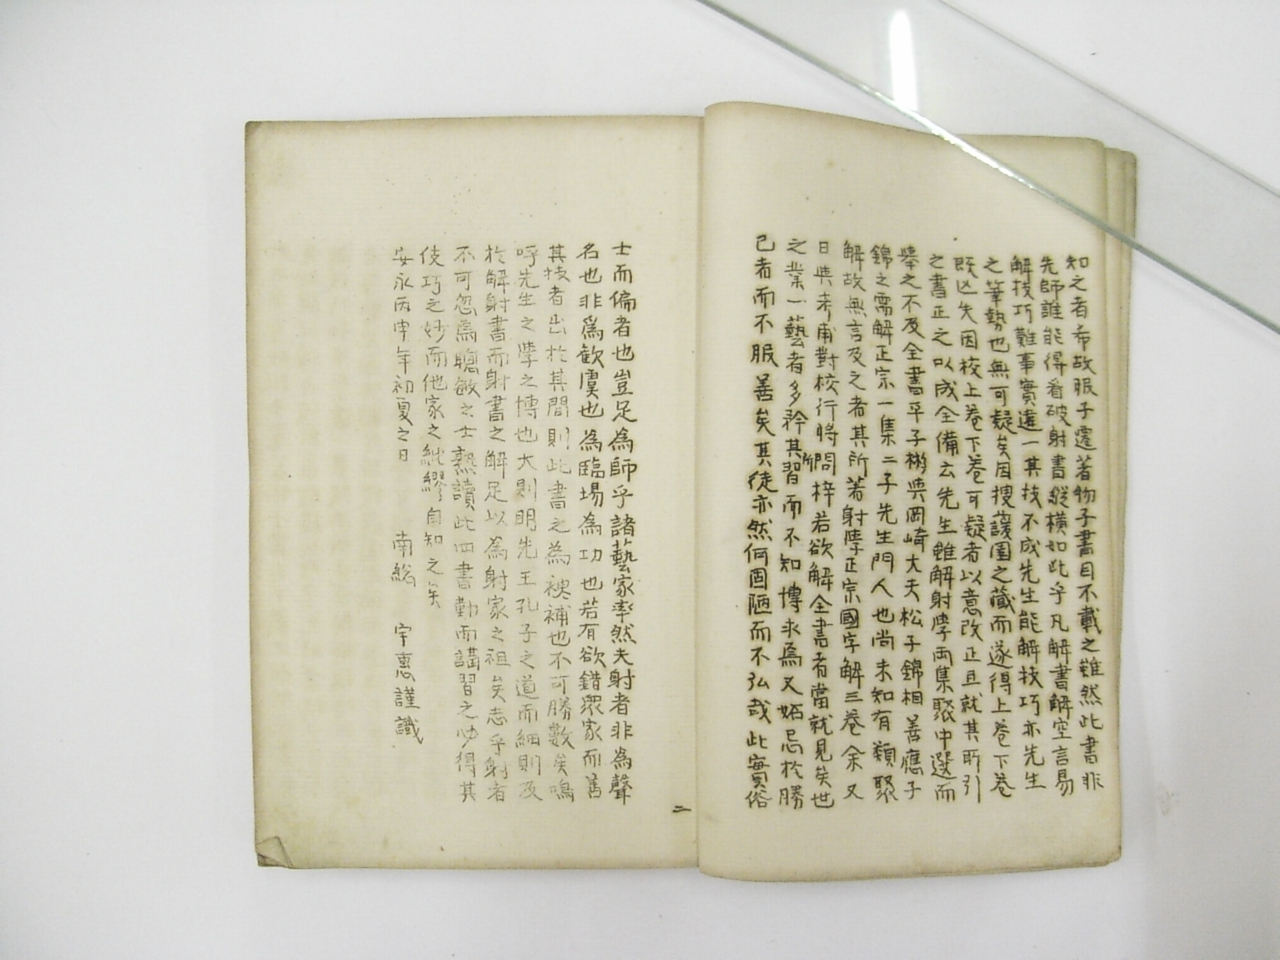 知之者希故服子遷著物子書目不載之雖然此書非
先師誰能得看破射書縱橫如此乎凡解書解空言易
解技巧難事實違一其技不成先生能解技巧亦先生
之筆勢也無可疑矣因搜蘐園之藏而遂得上卷下卷
既亡失因校上卷下卷可疑者以意改正且就其所引
之書正之以成全備玄先生雖解射學両集聚中選而
舉之不及全書平子彬與岡崎大夫松子錦相善應子
錦之需解正宗一集二子先生門人也尚未知有類聚
解故無言及之者其所著射學正宗國字解三卷余又
日與考甫對校行將問梓若欲解全書者當就見矣世
之業一藝者多矜其所習而不知博求焉又妬忌於勝
己者而不服善矣其徒亦然何固陋而不弘哉此實俗
士而偏者也豈足為師乎諸藝家率然夫射者非為聲
名也非為歡虞也為臨場為功也若有欲錯眾家而善
其技者出於其間則此書之為裨補也不可勝數矣嗚
呼先生之學之博也大則明先王孔子之道而細則及
於解射書而射書之解足以為射家之祖矣志乎射者
不可忽焉聰敏之士熟讀此四書勤而講習之必得其
伎巧之妙而他家之紕繆自知之矣
安永丙申年初夏之日　南總　宇惠謹識
二